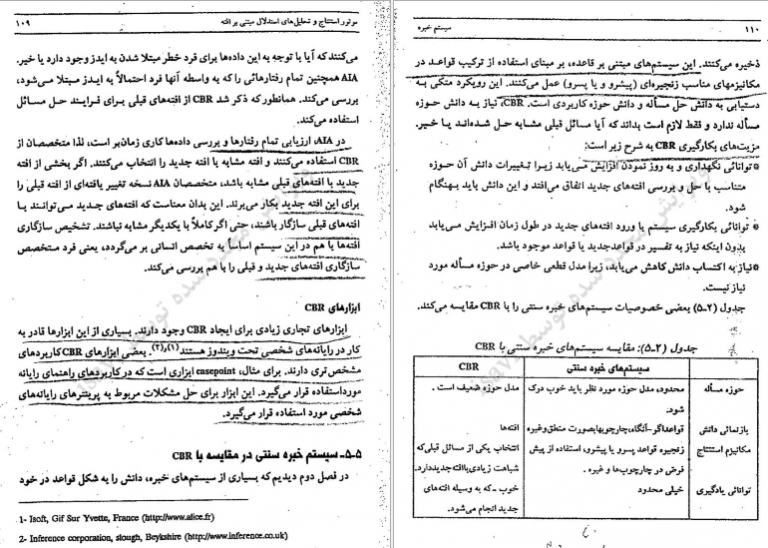 موتور استنتاج و تحلیل‌های استدلال مبتنی بر افته ۱۰۹
می‌کنند که آیا با توجه به این داده‌ها برای فرد خطر مبتلا شدن به ایدز وجود دارد یا خیر.
AIA همچنین تمام رفتارهائی را که به واسطه آنها فرد احتمالاً به ایدز مبتلا می‌شود،
بررسی می‌کند. همانطور که ذکر شد CBR از افته‌های قبلی برای فرایند حل مسائل
استفاده می‌کند.
در AIA، ارزیابی تمام رفتارها و بررسی داده‌ها کاری زمان‌بر است، لذا متخصصان از
CBR استفاده می‌کنند و افته مشابه با افته جدید را انتخاب می‌کنند. اگر بخشی از افته
جدید با افته‌های قبلی مشابه باشد، متخصصان AIA نسخه تغییر یافته‌ای از افته قبلی را
برای این افته جدید بکار می‌برند. این بدان معناست که افته‌های جدید می‌توانند با
افته‌های قبلی سازگار باشند، حتی اگر کاملاً با یکدیگر مشابه نباشند. تشخیص سازگاری
افته‌ها با هم در این سیستم اساساً به تخصص انسانی بر می‌گردد، یعنی فرد متخصص
سازگاری افته‌های جدید و قبلی را با هم بررسی می‌کند.
ابزارهای CBR
ابزارهای تجاری زیادی برای ایجاد CBR وجود دارند. بسیاری از این ابزارها قادر به
کار در رایانه‌های شخصی تحت ویندوز هستند(۱)و(۲). بعضی ابزارهای CBR کاربردهای
مشخص‌تری دارند. برای مثال، casepoint ابزاری است که در کاربردهای راهنمای رایانه
مورد استفاده قرار می‌گیرد. این ابزار برای حل مشکلات مربوط به پرینترهای رایانه‌های
شخصی مورد استفاده قرار می‌گیرد.
۵-۵- سیستم خبره سنتی در مقایسه با CBR
در فصل دوم دیدیم که بسیاری از سیستم‌های خبره، دانش را به شکل قواعد در خود
1- Isoft, Gif Sur Yvette, France (http://www.alice.fr)
2- Inference corporation, slough, Beykshire (http://www.inference.co.uk)
۱۱۰ سیستم خبره
ذخیره می‌کنند. این سیستم‌های مبتنی بر قاعده، بر مبنای استفاده از ترکیب قواعد در
مکانیزمهای مناسب زنجیره‌ای (پیشرو و یا پسرو) عمل می‌کنند. این رویکرد متکی به
دستیابی به دانش حل مسأله و دانش حوزه کاربردی است. CBR، نیاز به دانش حوزه
مسأله ندارد و فقط لازم است بداند که آیا مسائل قبلی مشابه حل شده‌اند یا خیر.
مزیت‌های بکارگیری CBR به شرح زیر است:
* توانائی نگهداری و به روز نمودن افزایش می‌یابد زیرا تغییرات دانش آن حوزه
متناسب با حل و بررسی افته‌های جدید اتفاق می‌افتد و این دانش باید بهنگام
شود.
* توانائی بکارگیری سیستم با ورود افته‌های جدید در طول زمان افزایش می‌یابد
بدون اینکه نیاز به تفسیر در قواعد جدید یا قواعد موجود باشد.
* نیاز به اکتساب دانش کاهش می‌یابد، زیرا مدل قطعی خاصی در حوزه مسأله مورد
نیاز نیست.
جدول (۲-۵) بعضی خصوصیات سیستم‌های خبره سنتی را با CBR مقایسه می‌کند.
جدول (۲-۵): مقایسه سیستم‌های خبره سنتی با CBR
سیستم‌های خبره سنتی CBR
حوزه مسأله محدود، مدل حوزه مورد نظر باید خوب درک مدل حوزه ضعیف است.
شود.
بازنمائی دانش قواعد اگر-آنگاه، چارچوبها بصورت منطق و غیره افته‌ها
مکانیزم استنتاج زنجیره قواعد پسرو یا پیشرو، استفاده از پیش انتخاب یکی از مسائل قبلی که
فرض در چارچوب‌ها و غیره. شباهت زیادی با افته جدید دارد.
توانائی یادگیری خیلی محدود خوب - که به وسیله افته‌های
جدید انجام می‌شود.